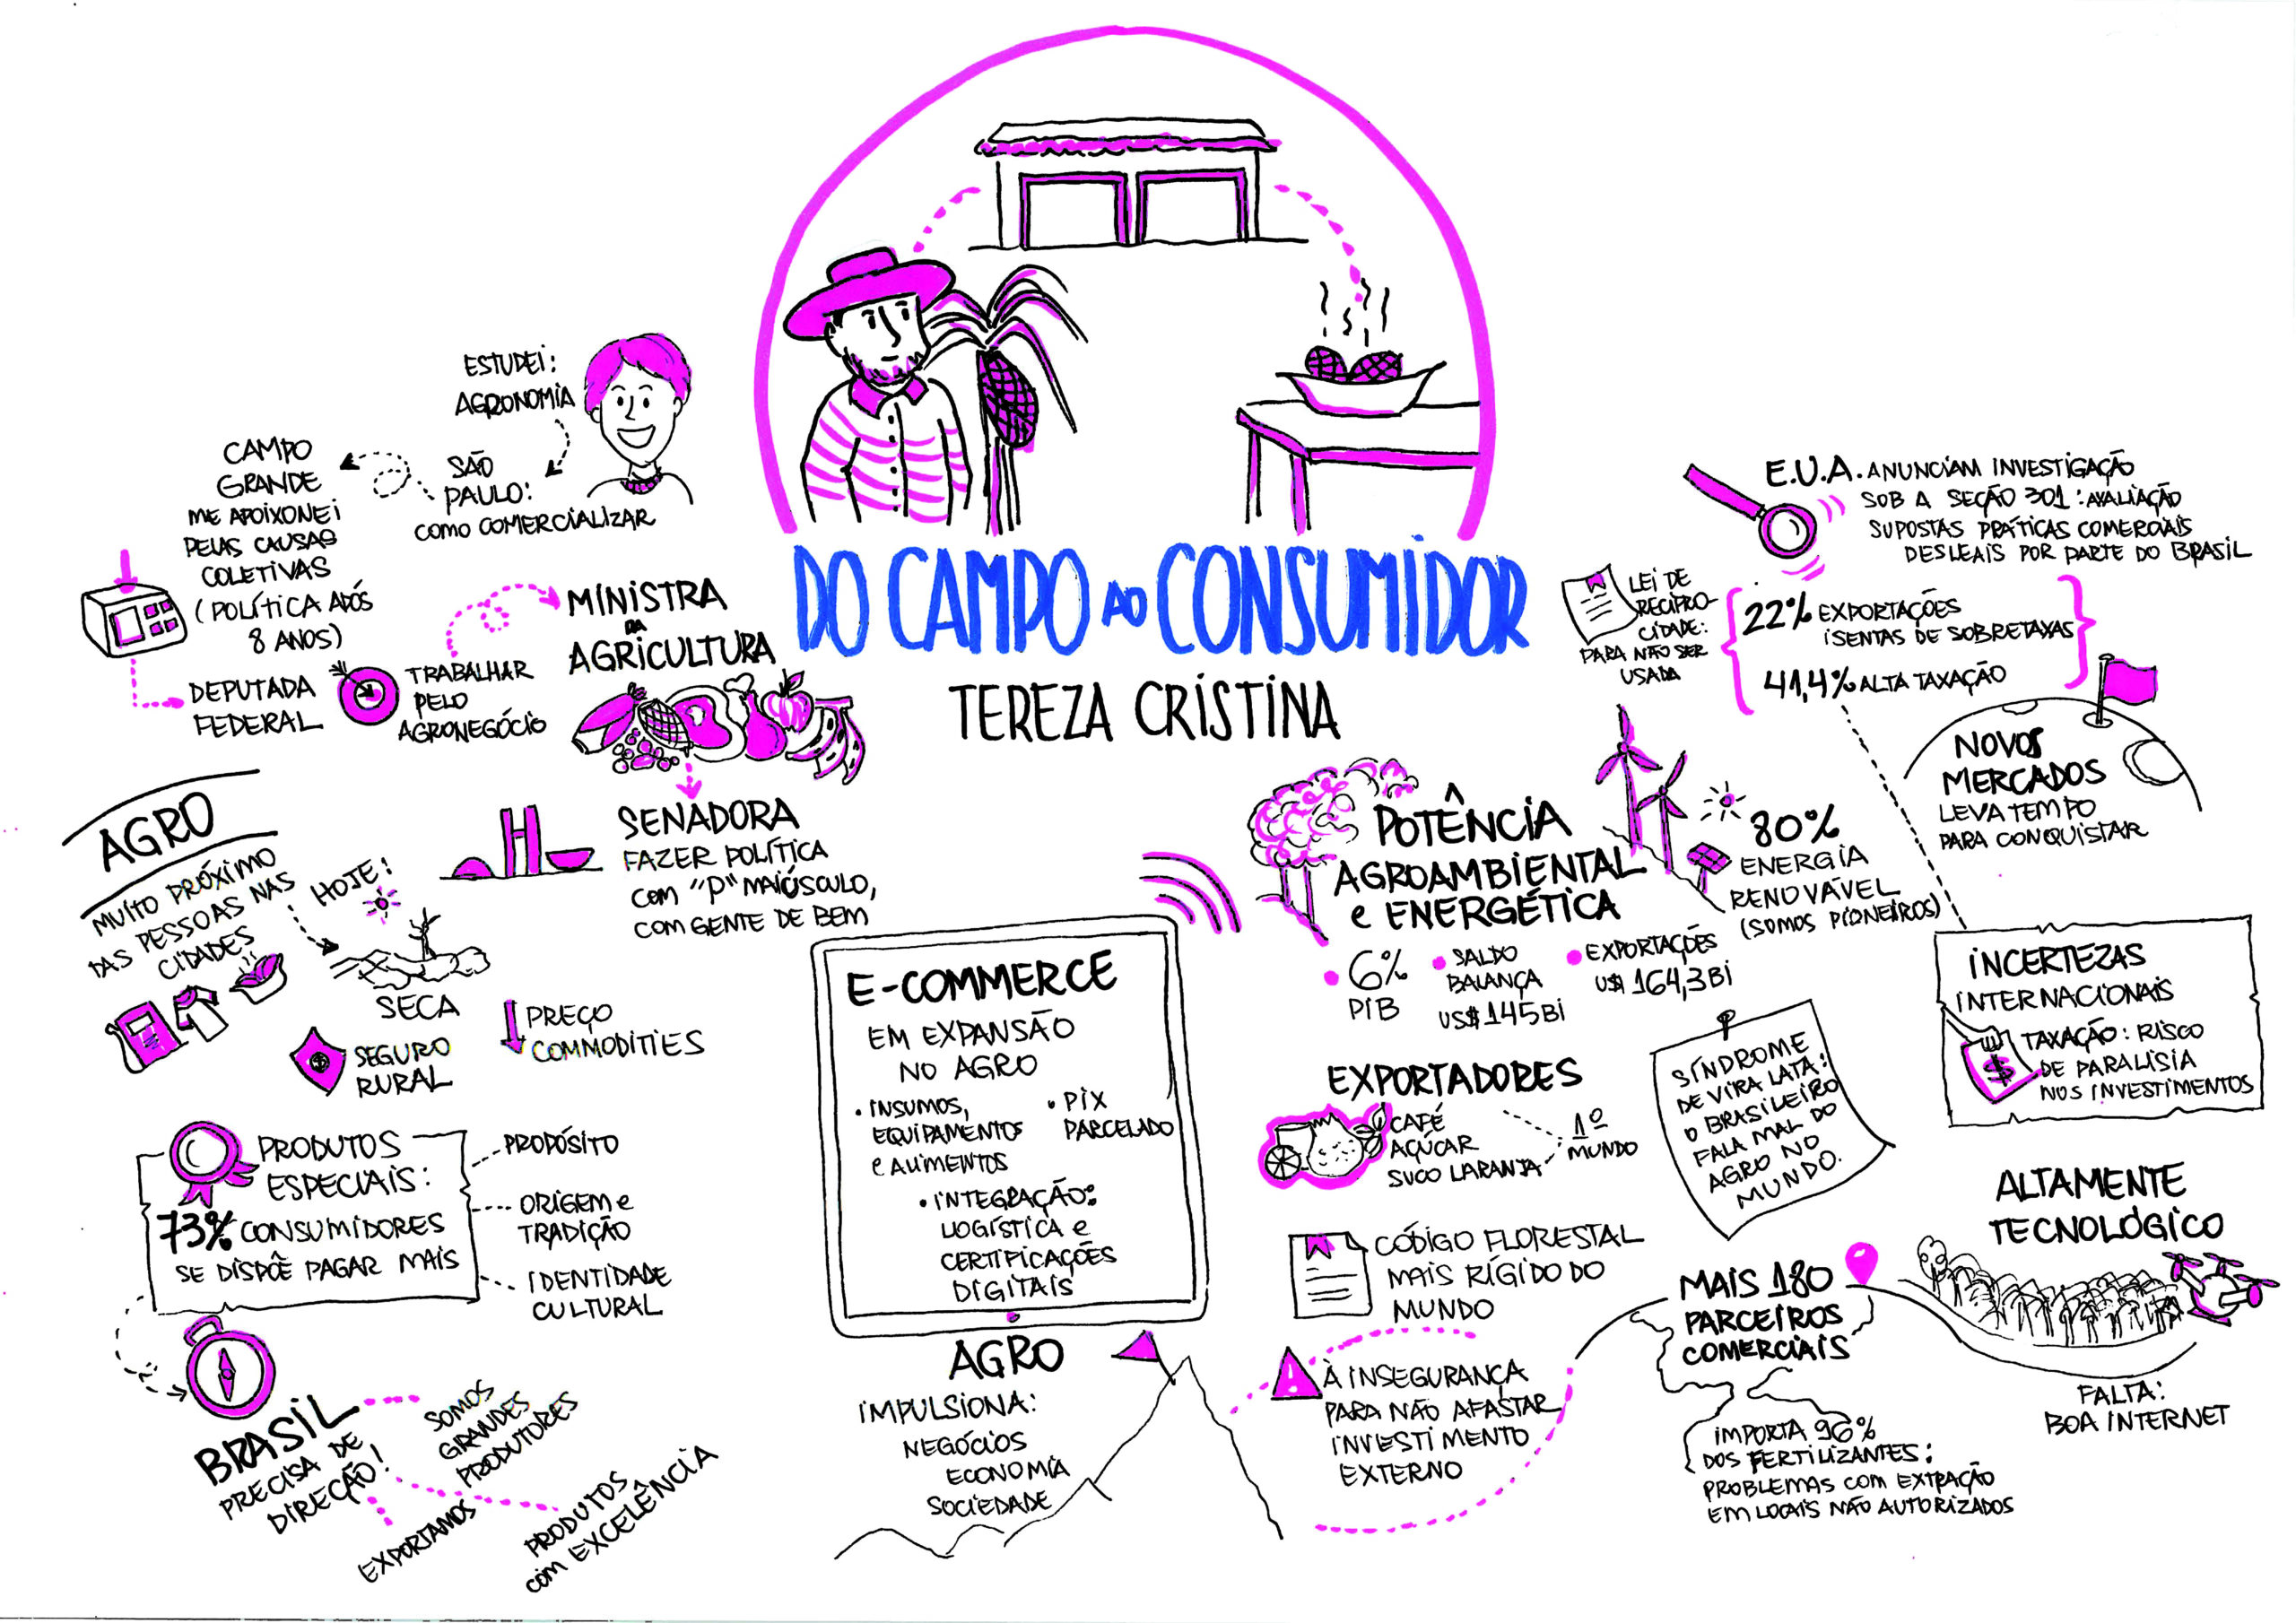 DO CAMPO AO CONSUMIDOR
TEREZA CRISTINA
ESTUDEI:
AGRONOMIA
SÃO
PAULO:
COMO COMERCIALIZAR
CAMPO
GRANDE
ME APOIXONEI
PELAS CAUSAS
COLETIVAS
(POLÍTICA APÓS
8 ANOS)
DEPUTADA
FEDERAL
TRABALHAR
PELO
AGRONEGÓCIO
MINISTRA
DA
AGRICULTURA
SENADORA
FAZER POLÍTICA
COM "P" MAIÚSCULO,
COM GENTE DE BEM
AGRO
MUITO PRÓXIMO
DAS PESSOAS NAS
CIDADES
HOJE:
SECA
SEGURO
RURAL
PREÇO
COMMODITIES
PRODUTOS
ESPECIAIS:
73% CONSUMIDORES
SE DISPÕE PAGAR MAIS
PROPÓSITO
ORIGEM e
TRADIÇÃO
IDENTIDADE
CULTURAL
BRASIL
PRECISA DE
DIREÇÃO!
SOMOS
GRANDES
PRODUTORES
EXPORTAMOS
PRODUTOS
COM EXCELÊNCIA
E-COMMERCE
EM EXPANSÃO
NO AGRO
• INSUMOS,
EQUIPAMENTOS
e ALIMENTOS
• PIX
PARCELADO
• INTEGRAÇÃO:
LOGÍSTICA e
CERTIFICAÇÕES
DIGITAIS
AGRO
IMPULSIONA:
NEGÓCIOS
ECONOMIA
SOCIEDADE
POTÊNCIA
AGROAMBIENTAL
e ENERGÉTICA
80%
ENERGIA
RENOVÁVEL
(SOMOS PIONEIROS)
• 6%
PIB
• SALDO
BALANÇA
US$ 145BI
• EXPORTAÇÕES
US$ 164,3BI
EXPORTADORES
CAFÉ
AÇÚCAR
SUCO LARANJA
1º
MUNDO
CÓDIGO FLORESTAL
MAIS RÍGIDO DO
MUNDO
À INSEGURANÇA
PARA NÃO AFASTAR
INVESTIMENTO
EXTERNO
E.U.A. ANUNCIAM INVESTIGAÇÃO
SOB A SEÇÃO 301: AVALIAÇÃO
SUPOSTAS PRÁTICAS COMERCIAIS
DESLEAIS POR PARTE DO BRASIL
LEI DE
RECIPRO-
CIDADE:
PARA NÃO SER
USADA
22% EXPORTAÇÕES
ISENTAS DE SOBRETAXAS
41,4% ALTA TAXAÇÃO
NOVOS
MERCADOS
LEVA TEMPO
PARA CONQUISTAR
INCERTEZAS
INTERNACIONAIS
$
TAXAÇÃO: RISCO
DE PARALISIA
NOS INVESTIMENTOS
SÍNDROME
DE VIRA LATA:
O BRASILEIRO
FALA MAL DO
AGRO NO
MUNDO.
ALTAMENTE
TECNOLÓGICO
FALTA:
BOA INTERNET
MAIS 180
PARCEIROS
COMERCIAIS
IMPORTA 96%
DOS FERTILIZANTES:
PROBLEMAS COM EXTRAÇÃO
EM LOCAIS NÃO AUTORIZADOS